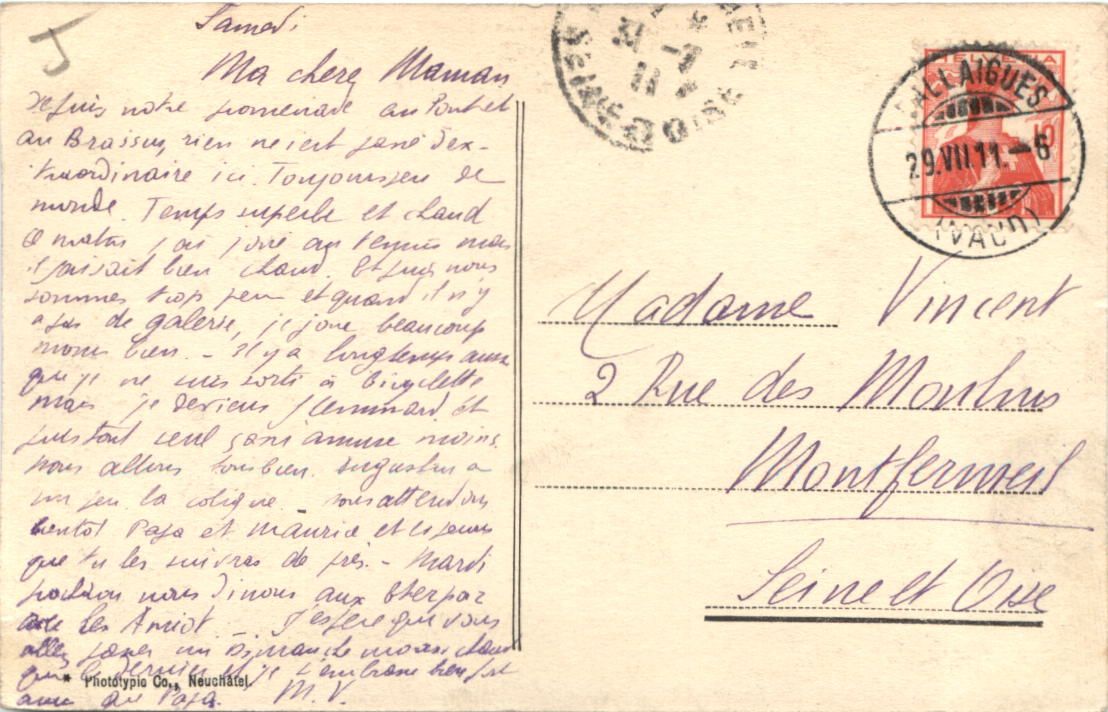 Samedi
Ma chère Maman
Depuis notre promenade au Pont et
au Brassus, rien ne s'est passé d'ex-
traordinaire ici. Toujours peu de
monde. Temps superbe et chaud
Ce matin j'ai joué au tennis mais
il faisait bien chaud. Et puis nous
sommes trop peu et quand il n'y
a pas de galerie, je joue beaucoup
moins bien. - Il y a longtemps aussi
que je ne suis sorti à bicyclette
mais je deviens flemmard et
puis tout seul ça m'amuse moins.
Nous allons tous bien. Augustin a
un peu la colique. Nous attendons
bientôt Papa et Maurice et
que tu les suivras de près. - Mardi
prochain nous dinons aux
avec les Amiot. J'espère que vous
allez passer un dimanche moins chaud
que le dernier et je t'embrasse bien fort
ainsi que Papa. M. V.
* Phototypie Co., Neuchâtel
31 - 7
11
SEINE ET OISE
BALLAIGUES
29.VII.11. - 6
(VAUD)
HELVETIA
10
Madame Vincent
2 Rue des Moulins
Montfermeil
Seine et Oise